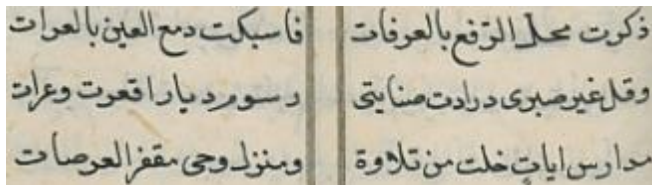 ذكرت محل الرفع بالعرفات فاسبكت دمع العين بالعرات
وقل غير صبرى درادت صنايتى رسوم ديار اقعرت وعرات
مدارس ايات خلت من تلاوة ومنزل وحى مقفر العرصات